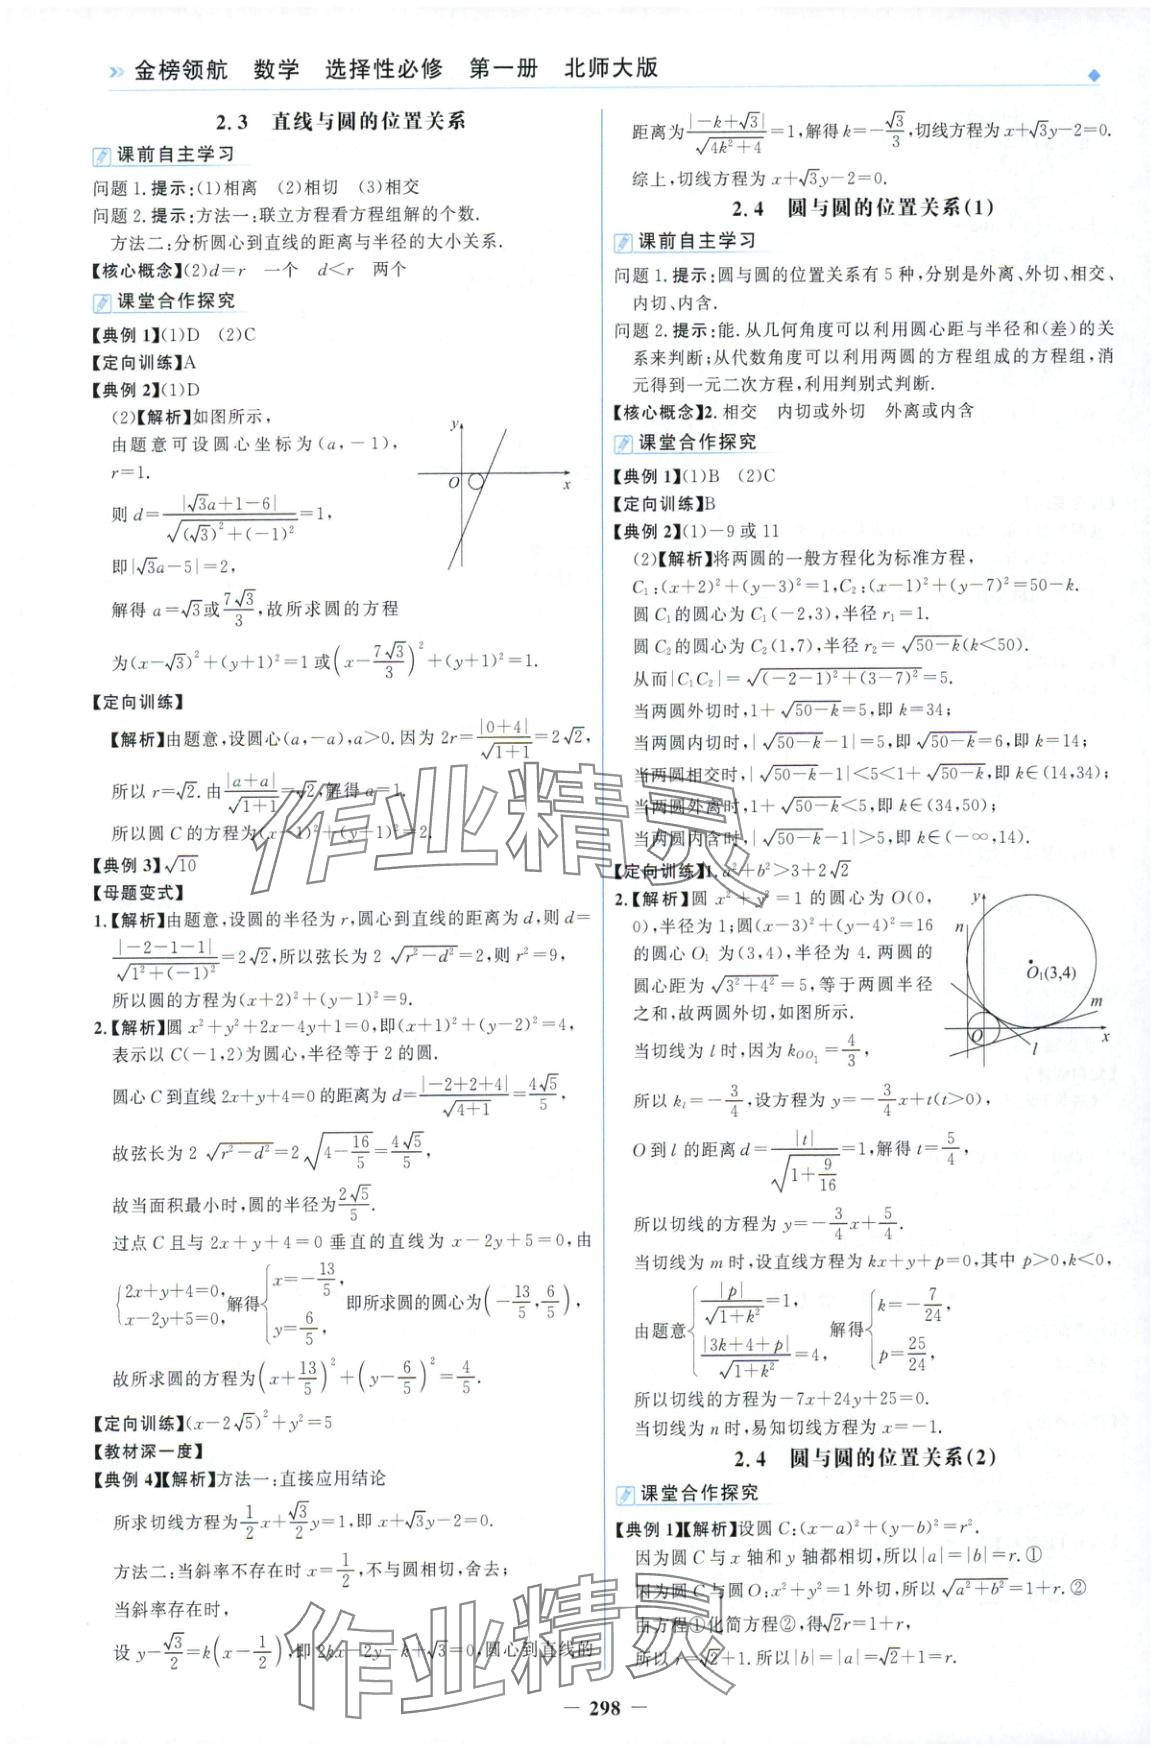 金榜领航 数学 选择性必修 第一册 北师大版
2.3 直线与圆的位置关系
课前自主学习
问题1.提示:(1)相离 (2)相切 (3)相交
问题2.提示:方法一:联立方程看方程组解的个数.
方法二:分析圆心到直线的距离与半径的大小关系.
【核心概念】(2)d=r 一个 d<r 两个
课堂合作探究
【典例1】(1)D (2)C
【定向训练】A
【典例2】(1)D
(2)【解析】如图所示,
由题意可设圆心坐标为(a,-1),
r=1.
则 d=|√3a+1-6|/√((√3)²+(-1)²)=1,
即|√3a-5|=2,
解得 a=√3或7√3/3,故所求圆的方程
为(x-√3)²+(y+1)²=1或(x-7√3/3)²+(y+1)²=1.
y
O
x
【定向训练】
【解析】由题意,设圆心(a,-a),a>0.因为2r=|0+4|/√(1+1)=2√2,
所以r=√2.由|a+a|/√(1+1)=√2,解得a=1.
所以圆C的方程为(x-1)²+(y+1)²=2.
【典例3】√10
【母题变式】
1.【解析】由题意,设圆的半径为r,圆心到直线的距离为d,则d=
|-2-1-1|/√(1²+(-1)²)=2√2,所以弦长为2√(r²-d²)=2,则r²=9,
所以圆的方程为(x+2)²+(y-1)²=9.
2.【解析】圆x²+y²+2x-4y+1=0,即(x+1)²+(y-2)²=4,
表示以C(-1,2)为圆心,半径等于2的圆.
圆心C到直线2x+y+4=0的距离为d=|-2+2+4|/√(4+1)=4√5/5,
故弦长为2√(r²-d²)=2√(4-16/5)=4√5/5,
故当面积最小时,圆的半径为2√5/5.
过点C且与2x+y+4=0垂直的直线为x-2y+5=0,由
{2x+y+4=0, x-2y+5=0, 解得{x=-13/5, y=6/5, 即所求圆的圆心为(-13/5,6/5),
故所求圆的方程为(x+13/5)²+(y-6/5)²=4/5.
【定向训练】(x-2√5)²+y²=5
【教材深一度】
【典例4】【解析】方法一:直接应用结论
所求切线方程为1/2x+√3/2y=1,即x+√3y-2=0.
方法二:当斜率不存在时x=1/2,不与圆相切,舍去;
当斜率存在时,
设y-√3/2=k(x-1/2),即2kx-2y-k+√3=0,圆心到直线的
距离为|-k+√3|/√(4k²+4)=1,解得k=-√3/3,切线方程为x+√3y-2=0.
综上,切线方程为x+√3y-2=0.
2.4 圆与圆的位置关系(1)
课前自主学习
问题1.提示:圆与圆的位置关系有5种,分别是外离、外切、相交、
内切、内含.
问题2.提示:能.从几何角度可以利用圆心距与半径和(差)的关
系来判断;从代数角度可以利用两圆的方程组成的方程组,消
元得到一元二次方程,利用判别式判断.
【核心概念】2.相交 内切或外切 外离或内含
课堂合作探究
【典例1】(1)B (2)C
【定向训练】B
【典例2】(1)-9或11
(2)【解析】将两圆的一般方程化为标准方程,
C₁:(x+2)²+(y-3)²=1,C₂:(x-1)²+(y-7)²=50-k.
圆C₁的圆心为C₁(-2,3),半径r₁=1.
圆C₂的圆心为C₂(1,7),半径r₂=√(50-k)(k<50).
从而|C₁C₂|=√((-2-1)²+(3-7)²)=5.
当两圆外切时,1+√(50-k)=5,即k=34;
当两圆内切时,|√(50-k)-1|=5,即√(50-k)=6,即k=14;
当两圆相交时,|√(50-k)-1|<5<1+√(50-k),即k∈(14,34);
当两圆外离时,1+√(50-k)<5,即k∈(34,50);
当两圆内含时,|√(50-k)-1|>5,即k∈(-∞,14).
【定向训练】1.a²+b²>3+2√2
2.【解析】圆x²+y²=1的圆心为O(0,
0),半径为1;圆(x-3)²+(y-4)²=16
的圆心O₁为(3,4),半径为4.两圆的
圆心距为√(3²+4²)=5,等于两圆半径
之和,故两圆外切,如图所示.
当切线为l时,因为k_{OO₁}=4/3,
所以k_l=-3/4,设方程为y=-3/4x+t(t>0),
y
n
O₁(3,4)
m
O
l
x
O到l的距离d=|t|/√(1+9/16)=1,解得t=5/4,
所以切线的方程为y=-3/4x+5/4.
当切线为m时,设直线方程为kx+y+p=0,其中p>0,k<0,
由题意{|p|/√(1+k²)=1, |3k+4+p|/√(1+k²)=4, 解得{k=-7/24, p=25/24,
所以切线的方程为-7x+24y+25=0.
当切线为n时,易知切线方程为x=-1.
2.4 圆与圆的位置关系(2)
课堂合作探究
【典例1】【解析】设圆C:(x-a)²+(y-b)²=r².
因为圆C与x轴和y轴都相切,所以|a|=|b|=r.①
因为圆C与圆O:x²+y²=1外切,所以√(a²+b²)=1+r.②
由方程①化简方程②,得√2r=1+r,
所以r=√2+1.所以|b|=|a|=√2+1=r.
— 298 —
作业精灵
作业精灵